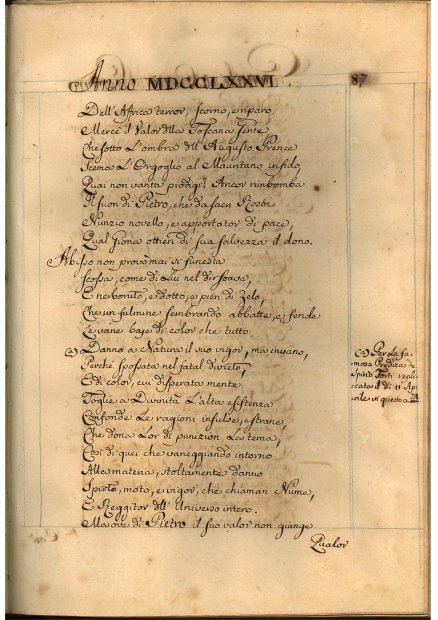 Anno MDCCLXXVI 87
Dell'Affrica terror, scorno, e riparo
Mercè il Valor dlla Toscana Gente
Che sotto l'ombra dll'Augusto Prence
Scema l'Orgoglio al Mauritano infido,
Quai non vanta prodigi? Ancor rimbomba
Il suon di Pietro, che da sacri Rostri
Nunzio novello, e apportator di pace,
Qual Giona ottien di sua salvezza il dono.
Abisso non provò mai sì funesta
Scossa, come di Lui nel dir
E nerboruto, e dotto, e pien di Zelo,
Che un fulmine sembrando abbatte, e fende
Le vane baje di color che tutto
(a) Danno a Natura il suo vigor, ma invano,
Perche spossata nel fatal divieto,
E di color, cui disperata mente
Toglie a Divinità l'alta esistenza
Confonde le ragioni insulse, e strane,
Che dona lor di punizion la tema,
Così di quei che vaneggiando intorno
Alla materia, stoltamente danno
Spirto, moto, e vigor, che chiaman Nume,
E Reggitor dll'Universo intero.
Ma ove di Pietro il suo valor non giunge
Qualor
(a) Per la fa-
mosa Predica de
Spiriti Forti repli-
cata il dì 11 Ap-
rile in questo a